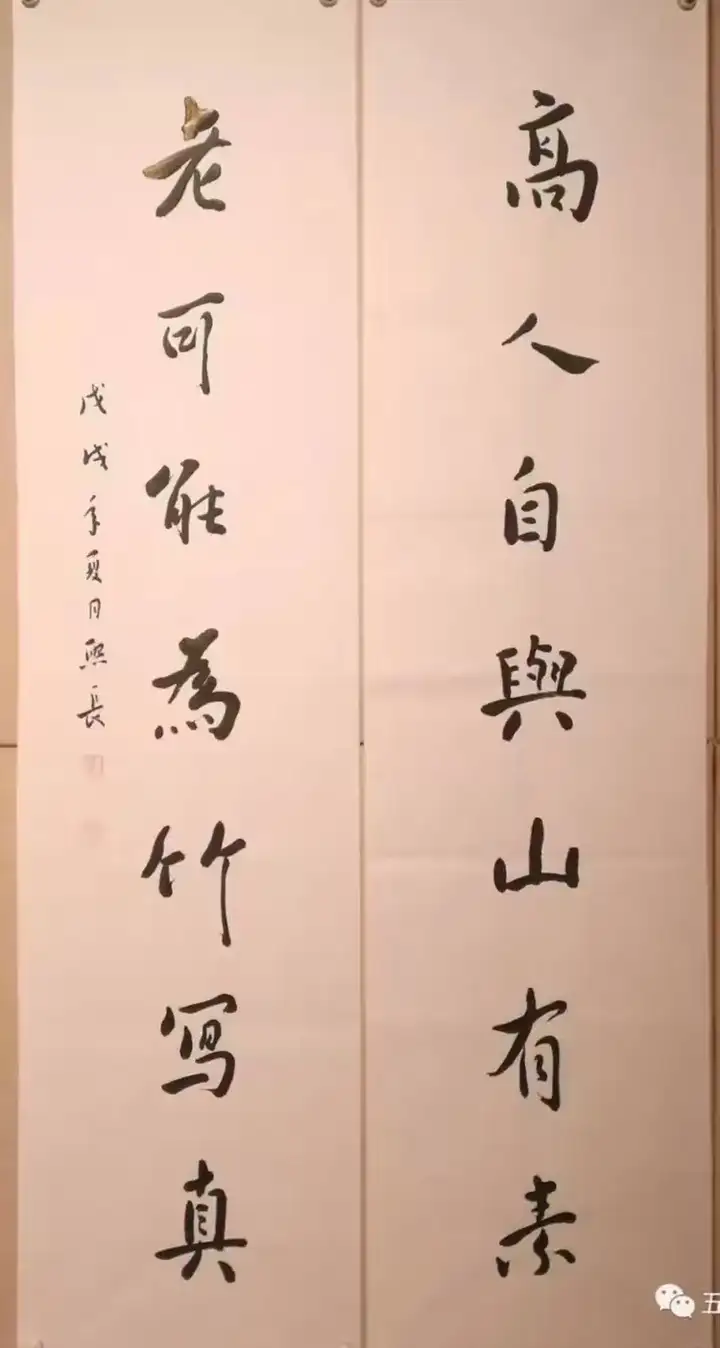 高人自與山有素
老可能為竹寫真
戊戌年夏月熙長
五